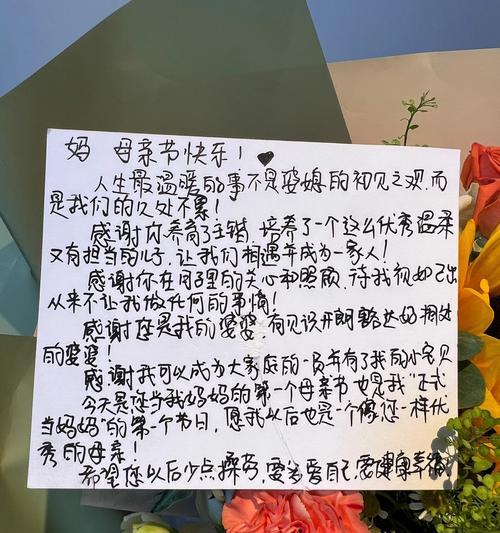 妈 母亲节快乐！♥
人生最温暖的事不是婆媳的初见之欢，而
是我们的久处不累！
感谢你养育了王锴，培养了一个这么优秀温柔
又有担当的儿子，让我们相遇并成为一家人！
感谢你在月子里的关心和照顾，待我视如己出
从来不让我做任何的事情！
感谢您是我的婆婆，有见识开朗豁达好相处
的婆婆！
感谢我可以成为大家庭的一员并有了我的小宝贝
今天是您当我妈妈的第一个母亲节也是我“正式”
当妈妈的第一个节日，愿我以后也是一个像您一样优
秀的母亲！
希望您以后少点操劳，要多爱自己，要健康幸福